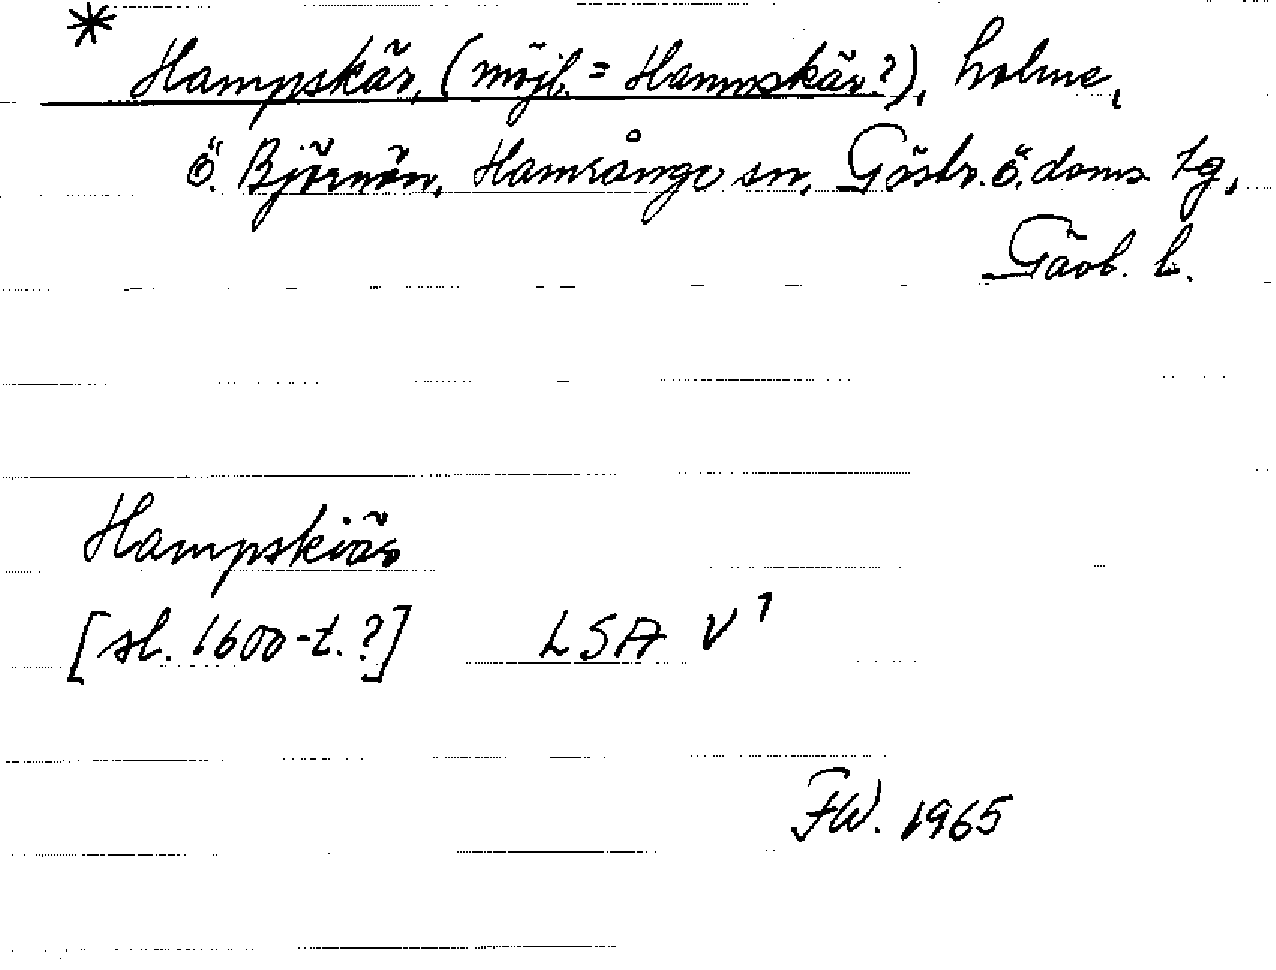 * Hampskär, (möjl. = Hamnskär?), holme,
ö. Björnön, Hamrånge sn, Gästr. ö. doms. tg,
Gävl. l.
Hampskiär
[sl. 1600-t.?] LSA V 1
FW. 1965